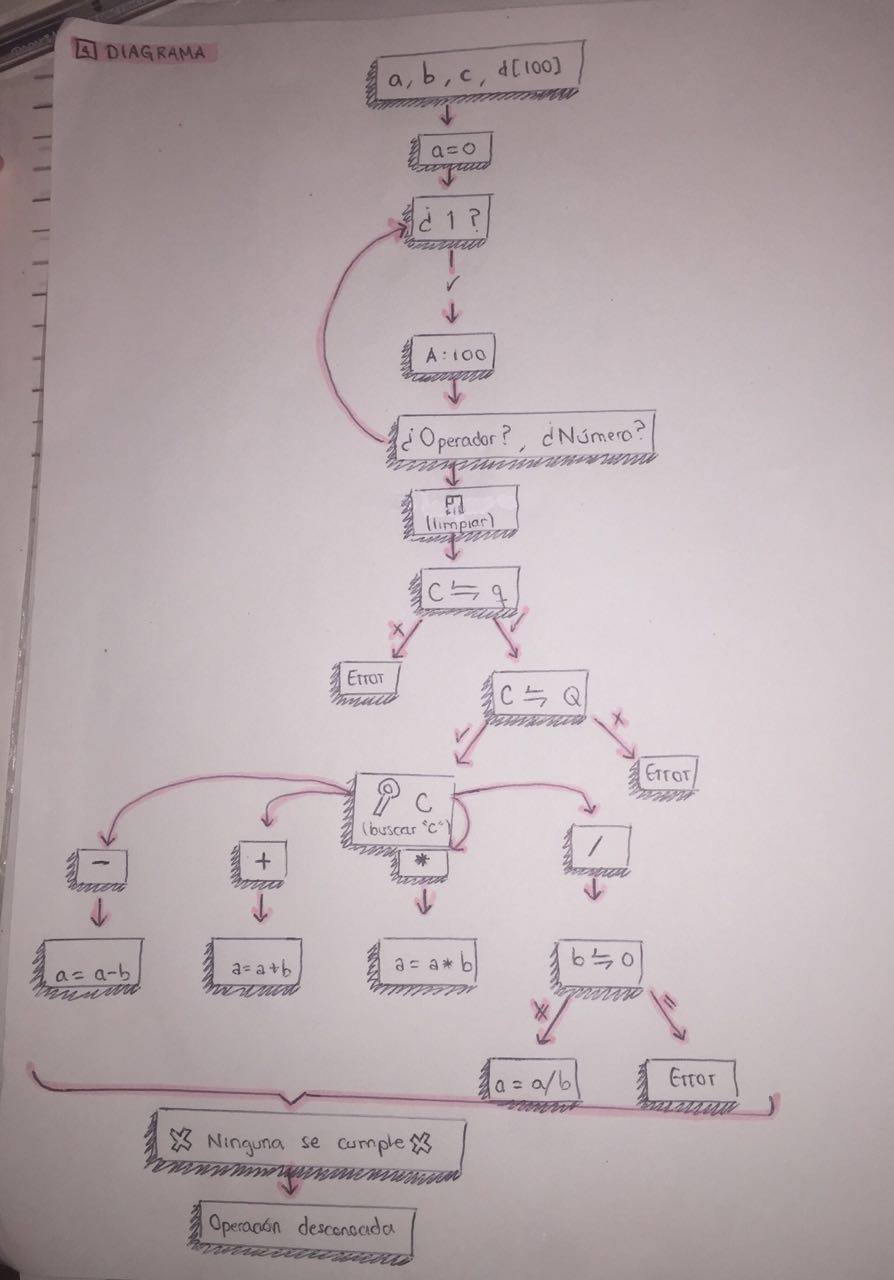 4 DIAGRAMA
a, b, c, d[100]
a=0
¿ 1 ?
✓
A:100
¿Operador?, ¿Número?
(limpiar)
C ⇆ q
x ✓
Error
C ⇆ Q
✓ x
Error
C
(buscar "C")
- + * /
a= a-b
a=a+b
a= a*b
b ⇆ 0
=
a = a/b
Error
✖ Ninguna se cumple ✖
Operación desconocida